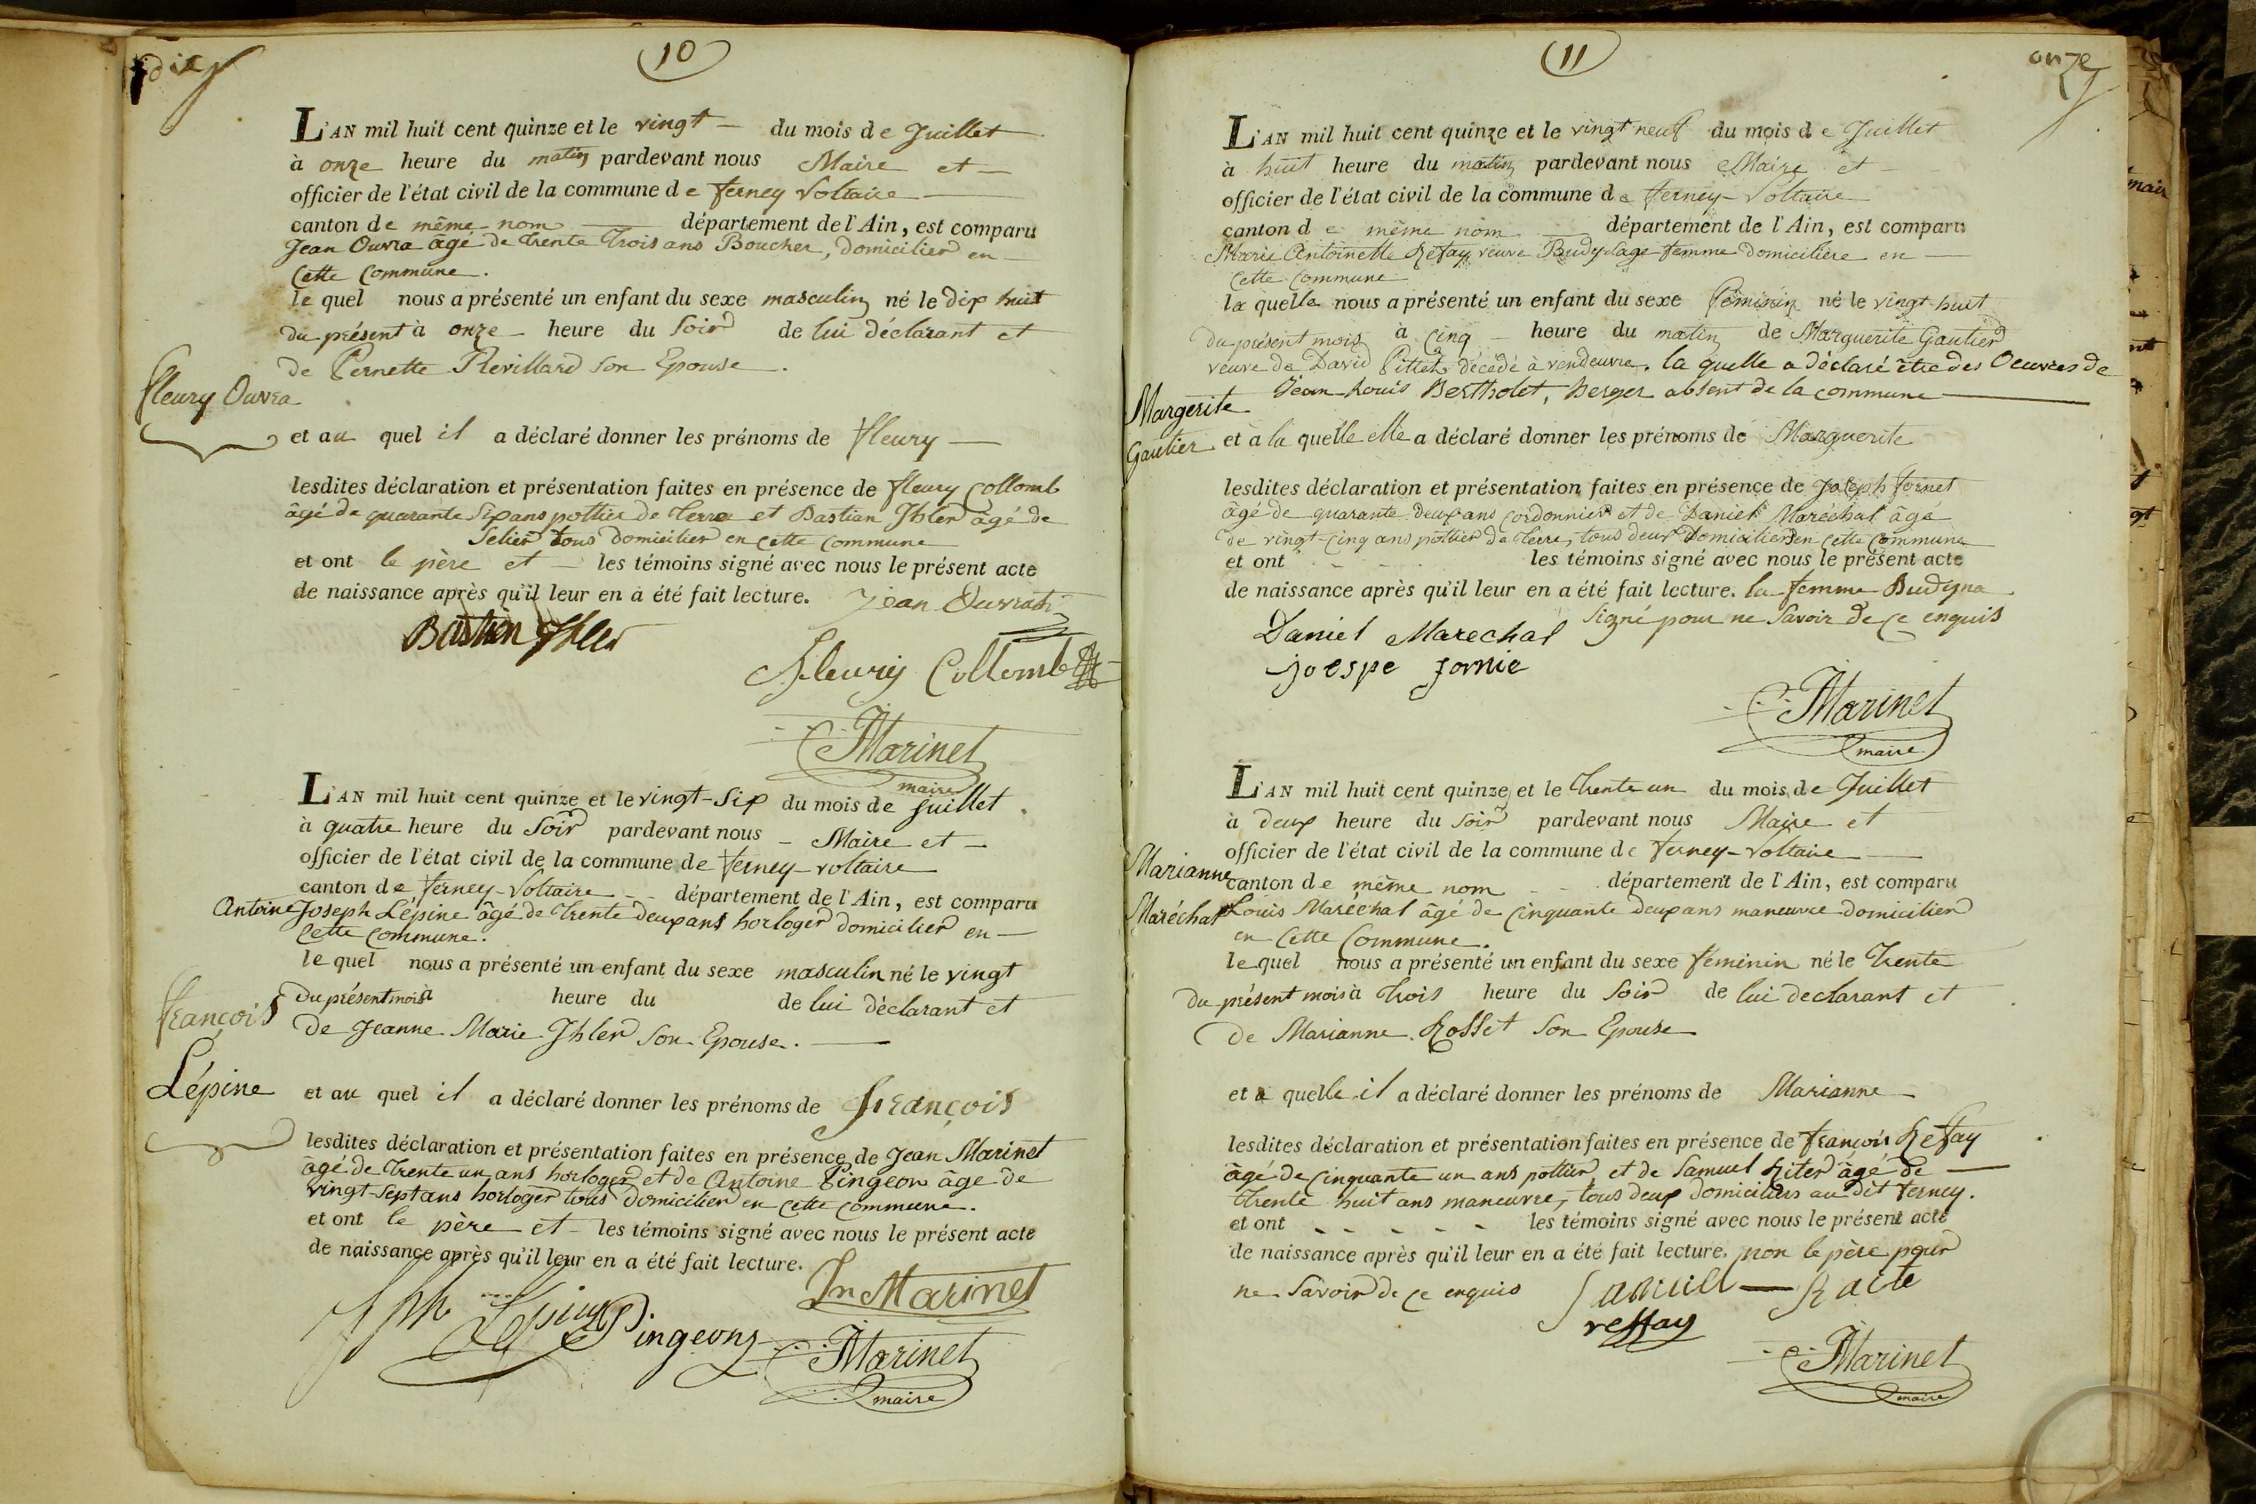 dix
10
L'AN mil huit cent quinze et le vingt du mois de Juillet
à onze heure du matin pardevant nous Maire et
officier de l'état civil de la commune de ferney Voltaire
canton de même nom département de l'Ain, est comparu
Jean Ouvra âgé de trente trois ans Boucher, domicilier en
cette commune.
le quel nous a présenté un enfant du sexe masculin né le dix huit
du présent à onze heure du soir de lui déclarant et
de Pernette Revillard son Epouse.
fleury Ouvra
et au quel il a déclaré donner les prénoms de fleury
lesdites déclaration et présentation faites en présence de fleury Collomb
âgé de quarante six ans pottier de terre et Bastian Ihler âgé de
Selier tous domicilier en cette commune
et ont le père et les témoins signé avec nous le présent acte
de naissance après qu'il leur en a été fait lecture. Jean Ouvrad
Bastien Ihler
fleurij Collomb
Marinet
maire
L'AN mil huit cent quinze et le vingt-six du mois de Juillet
à quatre heure du soir pardevant nous Maire et
officier de l'état civil de la commune de ferney-voltaire
canton de ferney-Voltaire département de l'Ain, est comparu
Antoine Joseph Lépine âgé de trente deux ans horloger domicilier en
cette commune.
le quel nous a présenté un enfant du sexe masculin né le vingt
du présent mois à heure du de lui déclarant et
de Jeanne Marie Ihler son Epouse.
françois
Lépine
et au quel il a déclaré donner les prénoms de françois
lesdites déclaration et présentation faites en présence de Jean Marinet
âgé de trente un ans horloger et de Antoine Pingeon âgé de
vingt-sept ans horloger tous domicilier en cette commune.
et ont le père et les témoins signé avec nous le présent acte
de naissance après qu'il leur en a été fait lecture.
Jn Marinet
Jph Lépine Pingeon
Marinet
maire
onze
11
L'AN mil huit cent quinze et le vingt neuf du mois de Juillet
à huit heure du matin pardevant nous Maire et
officier de l'état civil de la commune de ferney-Voltaire
canton de même nom département de l'Ain, est comparu
Marie Antoinette Refay veuve Budy sage femme domiciliere en
cette commune
la quelle nous a présenté un enfant du sexe féminin né le vingt-huit
du présent mois à cinq heure du matin de Marguerite Gautier
veuve de David Pittet décédé à vendeuvre. la quelle a déclaré être des Oeuvres de
Jean-Louis Bertholet, berger absent de la commune
Margerite
Gautier
et à la quelle elle a déclaré donner les prénoms de Marguerite
lesdites déclaration et présentation faites en présence de Joseph fornet
âgé de quarante deux ans cordonnier et de Daniel Maréchal âgé
de vingt-cinq ans pottier de terre, tous deux domiciliers en cette commune
et ont les témoins signé avec nous le présent acte
de naissance après qu'il leur en a été fait lecture. la femme Budy na
signé pour ne savoir de ce enquis
Daniel Marechal
joespe fornie
Marinet
maire
L'AN mil huit cent quinze et le trente un du mois de Juillet
à deux heure du soir pardevant nous Maire et
officier de l'état civil de la commune de ferney-Voltaire
Marianne
canton de même nom département de l'Ain, est comparu
Maréchal
Louis Maréchal âgé de cinquante deux ans maneuvre domicilier
en cette Commune.
le quel nous a présenté un enfant du sexe féminin né le trente
du présent mois à trois heure du soir de lui declarant et
de Marianne Rosset son Epouse
et a quelle il a déclaré donner les prénoms de Marianne
lesdites déclaration et présentation faites en présence de françois Refay
âgé de cinquante un ans pottier et de Samuel Riter âgé de
trente huit ans maneuvre, tous deux domiciliers au dit ferney.
et ont les témoins signé avec nous le présent acte
de naissance après qu'il leur en a été fait lecture. non le père pour
ne savoir de ce enquis
Samuel Raite
reffay
Marinet
maire